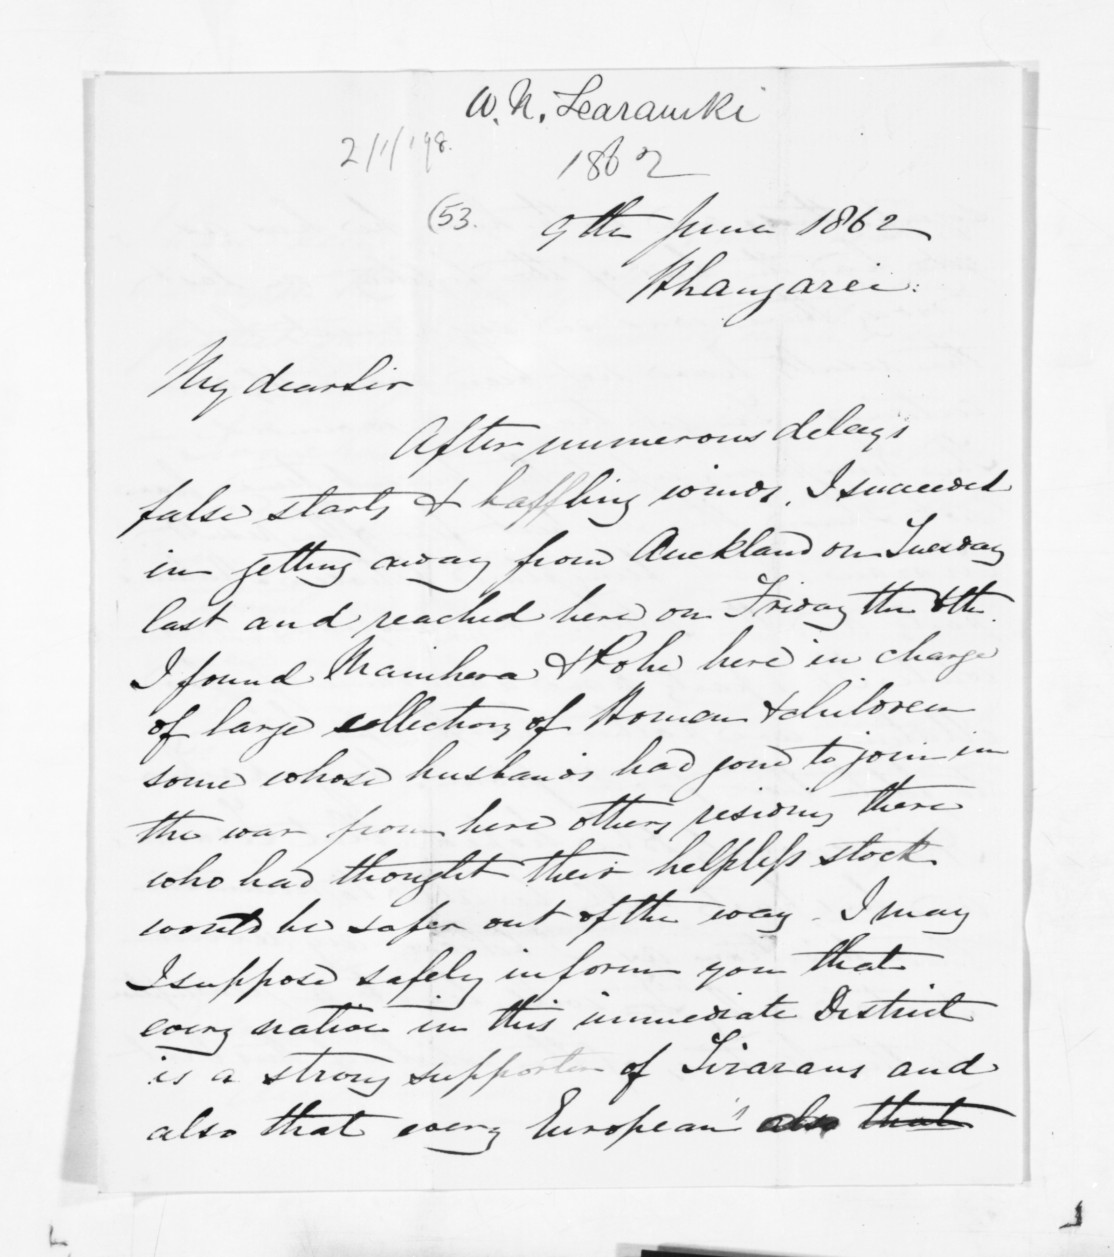 W. N. Searancke
2/1/198.
1862
(53.
9th June 1862
Whangarei.
My dear Sir
After numerous delays
false starts & baffling winds, I succeeded
in getting away from Auckland on Tuesday
last and reached here on Friday the 6th.
I found Manihera & Pohe here in charge
of large collection of Women & children
some whose husbands had gone to join in
the war from here others residing there
who had thought their helpless stock
would be safer out of the way. I may
I suppose safely inform you that
every native in this immediate District
is a strong supporter of Tirarau and
also that every European also that